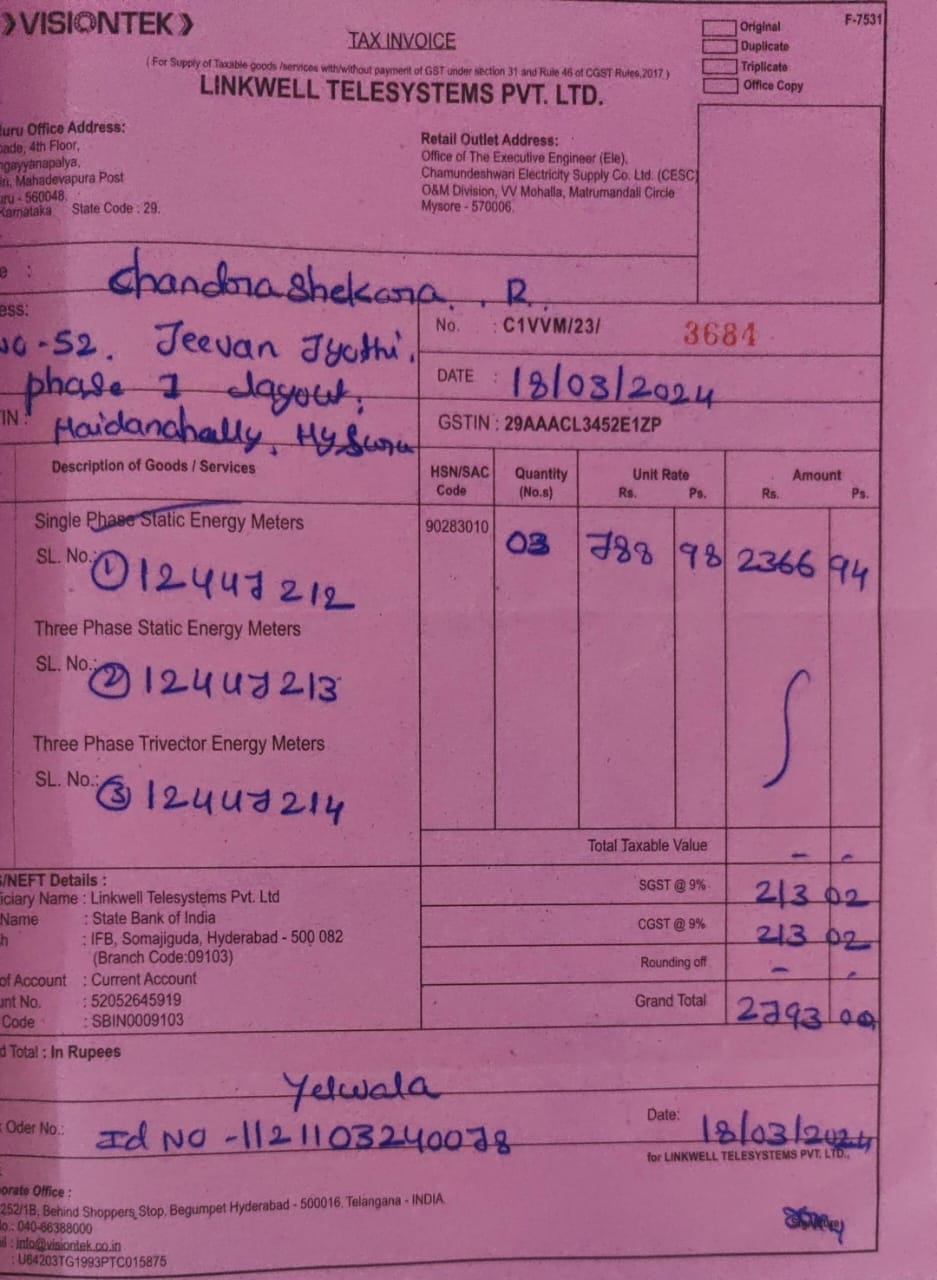 VISIONTEK
F-7531
TAX INVOICE
Original
Duplicate
Triplicate
Office Copy
( For Supply of Taxable goods /services with/without payment of GST under section 31 and Rule 46 of CGST Rules,2017 )
LINKWELL TELESYSTEMS PVT. LTD.
uru Office Address:
ade, 4th Floor,
ngayyanapalya,
n, Mahadevapura Post
uru - 560048.
Karnataka State Code : 29.
Retail Outlet Address:
Office of The Executive Engineer (Ele),
Chamundeshwari Electricity Supply Co. Ltd. (CESC)
O&M Division, VV Mohalla, Matrumandali Circle
Mysore - 570006.
e : Chandrashekara. R.
ess:
NO-52. Jeevan Jyothi,
phase I Layout,
IN : Maidanahally, Mysuru
No. : C1VVM/23/ 3684
DATE : 18/03/2024
GSTIN : 29AAACL3452E1ZP
Description of Goods / Services HSN/SAC Code Quantity (No.s) Unit Rate Rs. Ps. Amount Rs. Ps.
Single Phase Static Energy Meters 90283010 03 788 98 2366 94
SL. No.: ① 12447212
Three Phase Static Energy Meters
SL. No.: ② 12447213
Three Phase Trivector Energy Meters
SL. No.: ③ 12447214
Total Taxable Value - -
SGST @ 9% 213 02
CGST @ 9% 213 02
Rounding off - -
Grand Total 2793 00
/NEFT Details :
iciary Name : Linkwell Telesystems Pvt. Ltd
Name : State Bank of India
h : IFB, Somajiguda, Hyderabad - 500 082
(Branch Code:09103)
of Account : Current Account
unt No. : 52052645919
Code : SBIN0009103
d Total : In Rupees
Yelwala
Oder No.: Id NO -1121103240078
Date: 18/03/2024
for LINKWELL TELESYSTEMS PVT. LTD.,
orate Office :
252/1B, Behind Shoppers Stop, Begumpet Hyderabad - 500016, Telangana - INDIA.
lo.: 040-66388000
il : info@visiontek.co.in
: U64203TG1993PTC015875